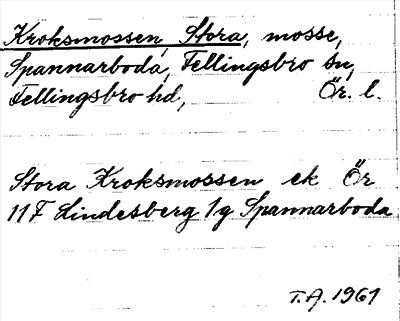 Kroksmossen, Stora, mosse,
Spannarboda, Fellingsbro sn,
Fellingsbro hd, Ör. l.
Stora Kroksmossen ek Ör
11F Lindesberg 1g Spannarboda
T.A. 1961